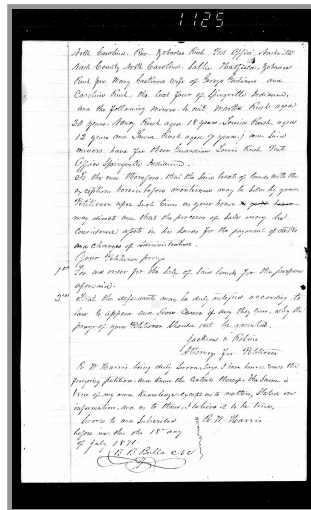 1125
North Carolina. Rev. Zebedee Rush Post Office, Nashville
Nash County North Carolina. Sallie Hatfield, Zebedee
Rush Jun. Mary Gastineau wife of George Gastineau and
Caroline Rush the last four of Spiceville Indianna,
and the following minors to wit, Martha Rush aged
20 years. Nancy Rush aged 18 years. Louisa Rush aged
12 years and Laura Rush aged 9 years; and said
minors have for their Guardian Louis Rush Post
Office Spiceville Indianna.
To the end therefore, that the said tract of lands with the
exceptions herein before mentioned may be sold by your
Petitioner upon such terms as your honor
may direct and that the proceeds of sales may be
considered assets in his hands for the payment of debts
and charges of Administration.
Your Petitioner prays
1st For an order for the sale of said lands for the purposes
aforesaid.
2nd That the defendants may be duly notified according to
law to appear and show cause if any they can, why the
prayer of your Petitioner should not be granted.
Jackson &
Attorney for Petitioner
R. W. Harris being duly sworn, says, I have heard read the
foregoing petition, and know the contents thereof. The same is
true of my own knowledge, except as to matters, stated on
information, and as to those, I believe it to be true.
Sworn to and subscribed R. W. Harris
before me, this the 18th day
of July 1871.
B. B. Bulla C.S.C